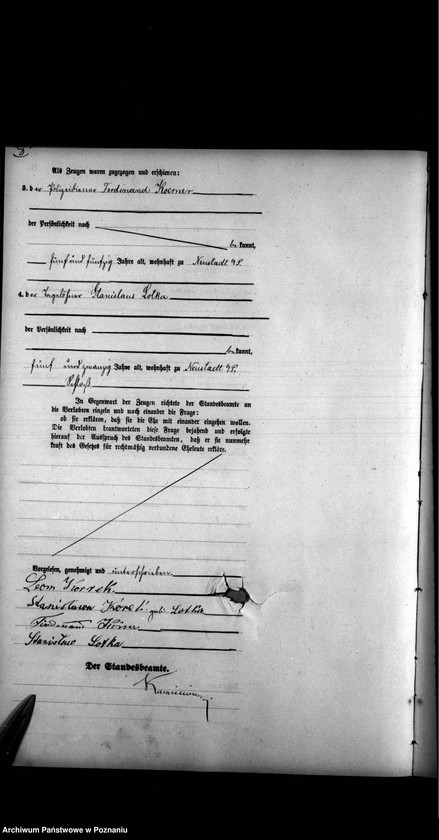 Als Zeugen waren zugezogen und erschienen:
3. der Polizeidiener Ferdinand Koerner
der Persönlichkeit nach
be kannt,
fünf und fünfzig Jahre alt, wohnhaft zu Neustadt a/P.
4. der Tagelöhner Stanislaus Lotka
der Persönlichkeit nach
be kannt,
fünf und zwanzig Jahre alt, wohnhaft zu Neustadt a/P.
Schloß
In Gegenwart der Zeugen richtete der Standesbeamte an
die Verlobten einzeln und nach einander die Frage:
ob sie erklären, daß sie die Ehe mit einander eingehen wollen.
Die Verlobten beantworteten diese Frage bejahend und erfolgte
hierauf der Ausspruch des Standesbeamten, daß er sie nunmehr
kraft des Gesetzes für rechtmäßig verbundene Eheleute erkläre.
Vorgelesen, genehmigt und unterschrieben.
Leon
Stanisława geb. Lotka
Ferdinand
Stanisław Lotka
Der Standesbeamte.
Archiwum Państwowe w Poznaniu